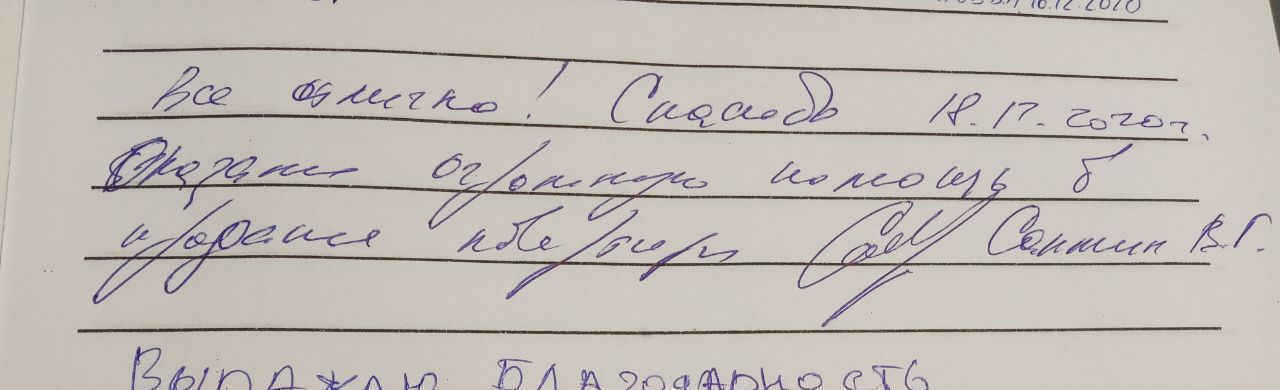 16.12.2020
Все отлично! Спасибо 18.12.2020г.
Оказали огромную помощь в
продаже квартиры В.Г.
Выражаю благодарность